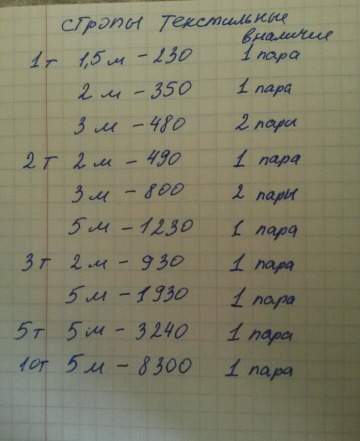 стропы текстильные
в наличие
1т 1,5 м - 230 1 пара
2 м - 350 1 пара
3 м - 480 2 пары
2т 2 м - 490 1 пара
3 м - 800 2 пары
5 м - 1230 1 пара
3т 2 м - 930 1 пара
5 м - 1930 1 пара
5т 5 м - 3240 1 пара
10т 5 м - 8300 1 пара